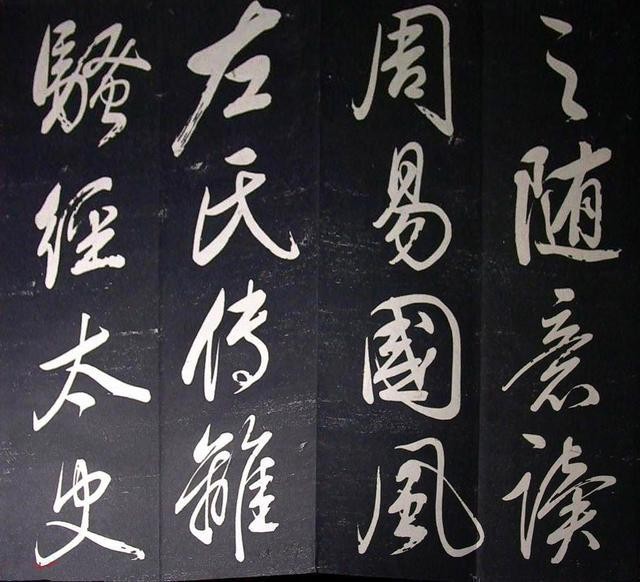 之随意读
周易國風
左氏传離
騷經太史